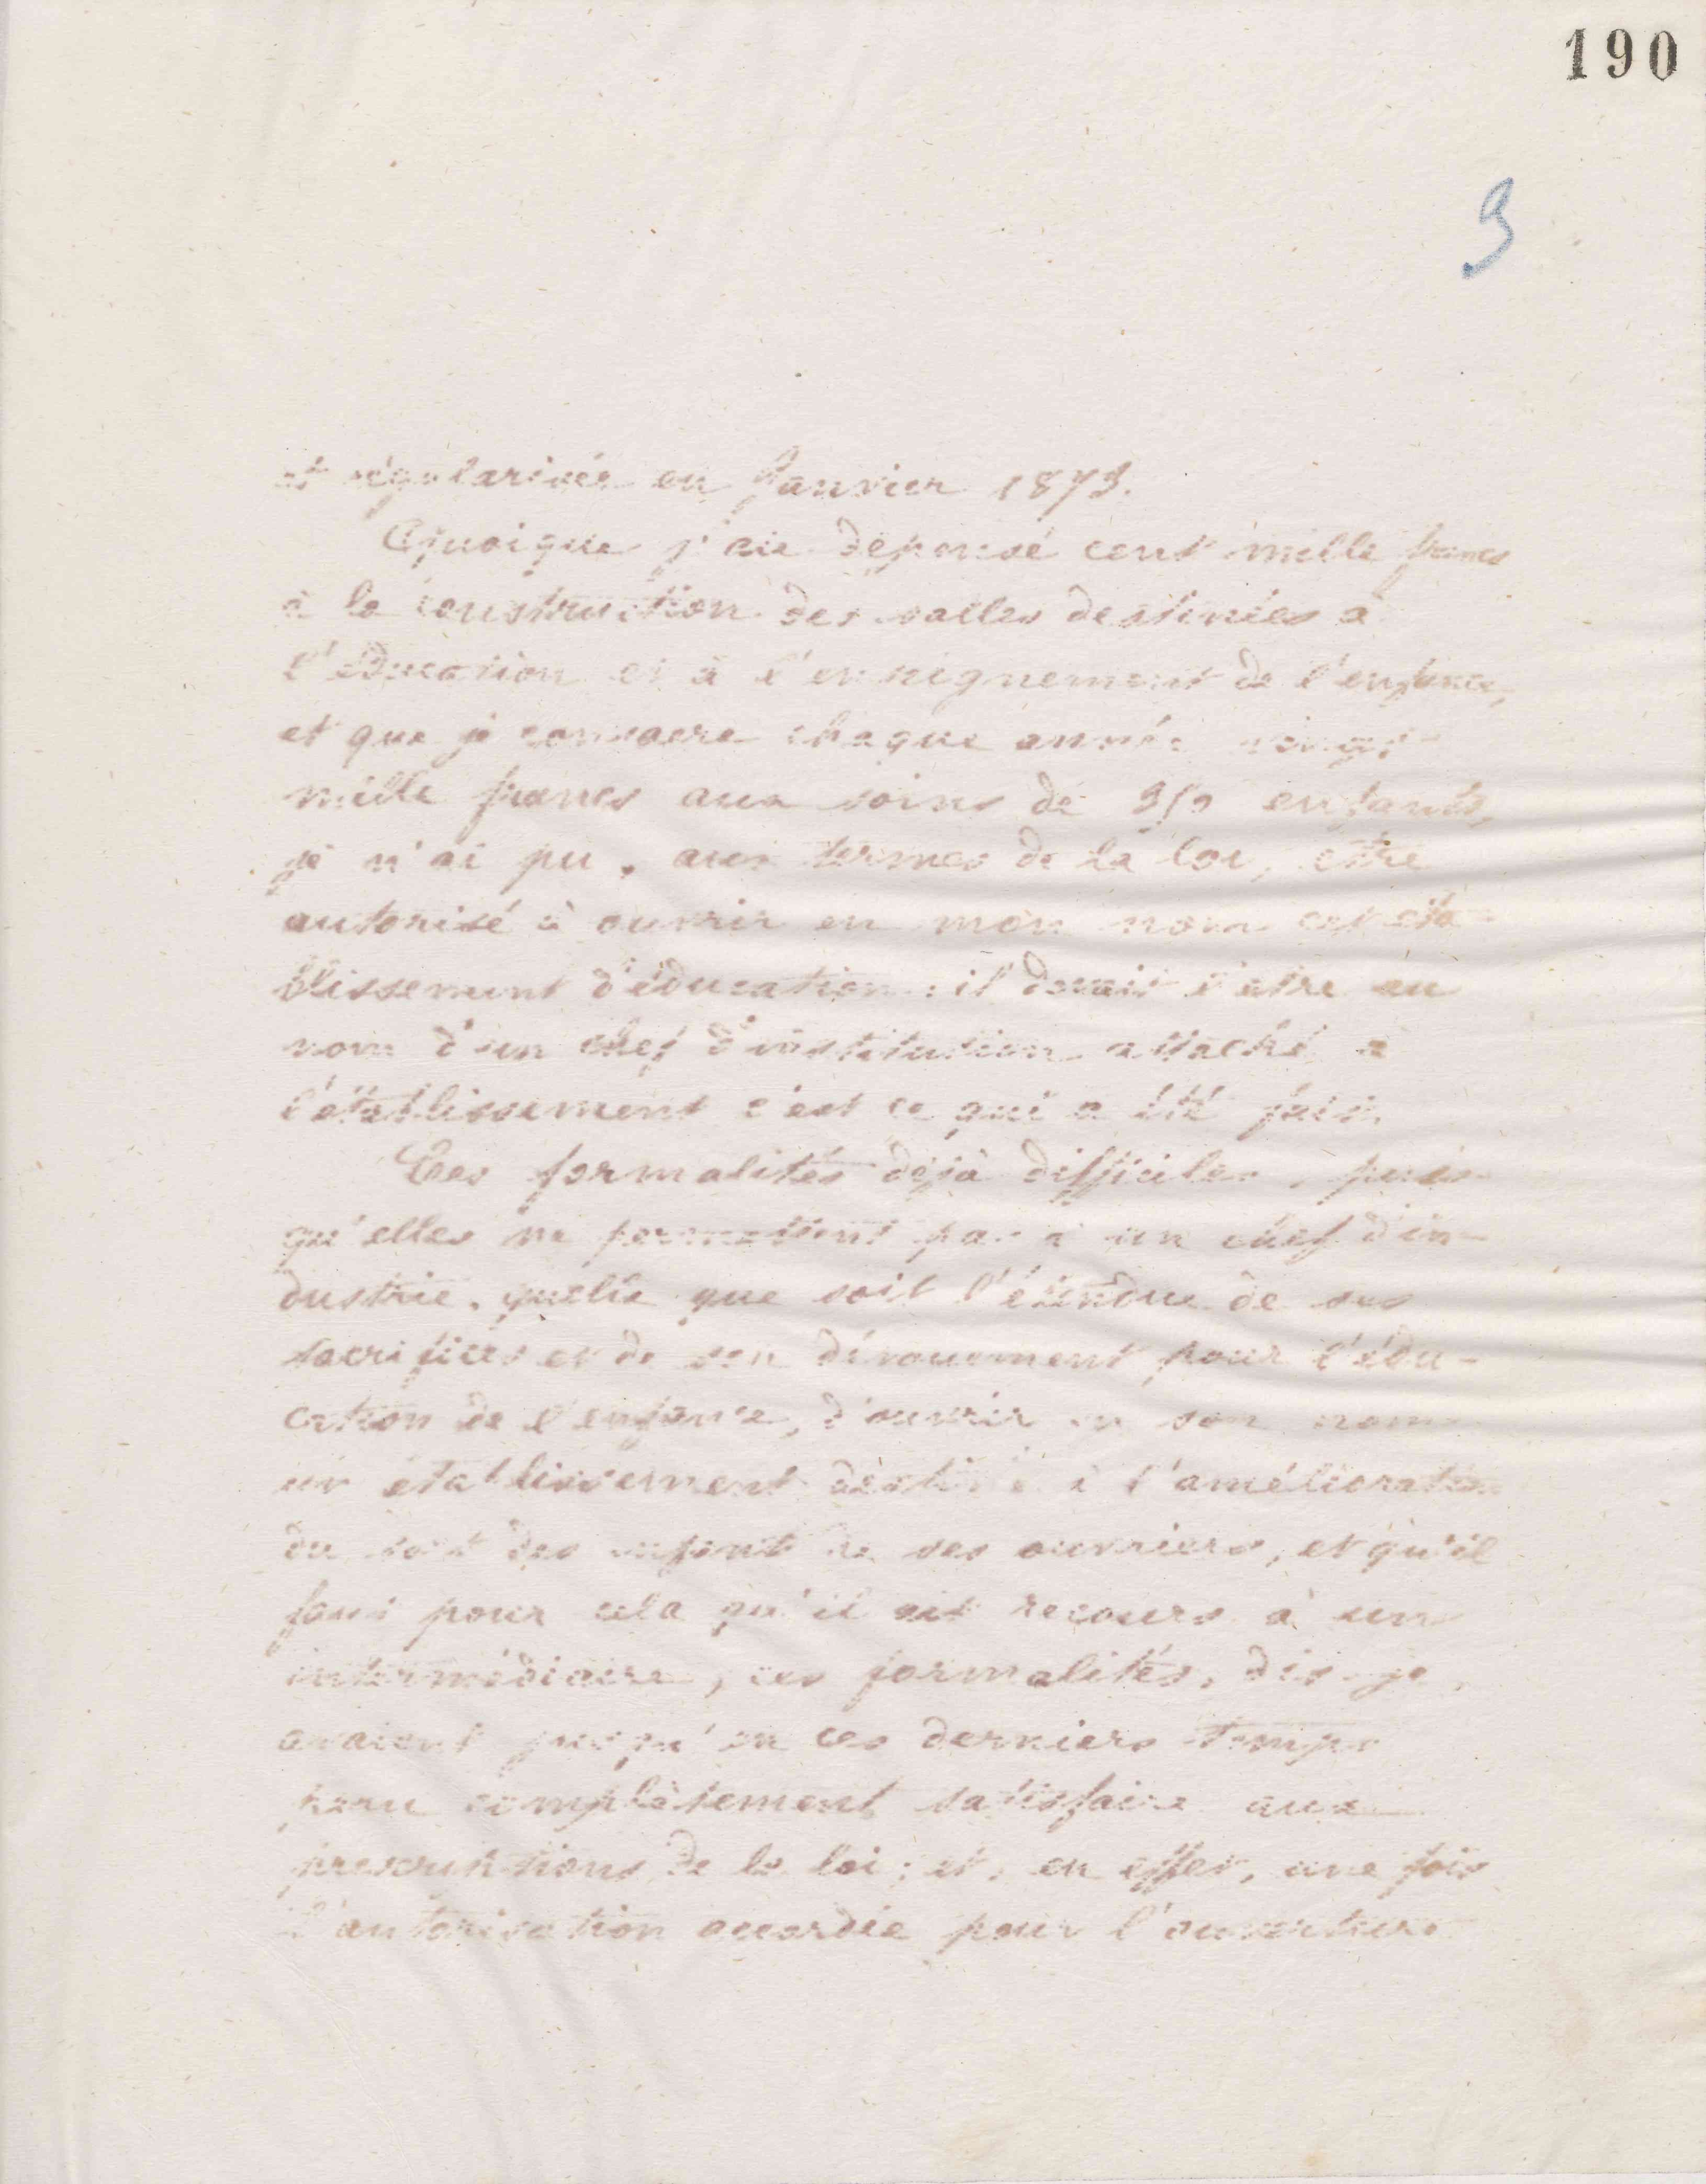 190
3
et régularisée en Janvier 1873.
Quoique j'aie dépensé cent mille francs
à la construction des salles destinées à
l'éducation et à l'enseignement de l'enfance,
et que je consacre chaque année vingt
mille francs aux soins de enfants,
je n'ai pu, aux termes de la loi, être
autorisé à ouvrir en mon nom cet éta-
blissement d'éducation : il devait l'être au
nom d'un chef d'institution attaché à
l'établissement c'est ce qui a été fait.
Ces formalités déjà difficiles, puis-
qu'elles ne permettent pas à un chef d'in-
dustrie, quelle que soit l'étendue de ses
sacrifices et de son dévouement pour l'édu-
cation de l'enfance, d'ouvrir en son nom
un établissement destiné à l'amélioration
du sort des enfants de ses ouvriers, et qu'il
faut pour cela qu'il ait recours à un
intermédiaire, ces formalités, dis-je,
avaient jusqu'en ces derniers temps
paru complètement satisfaire aux
prescriptions de la loi ; et, en effet, une fois
l'autorisation accordée pour l'ouverture